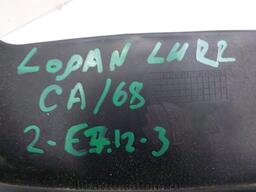 LOGAN LH22
CA/68
2-E7.12-3